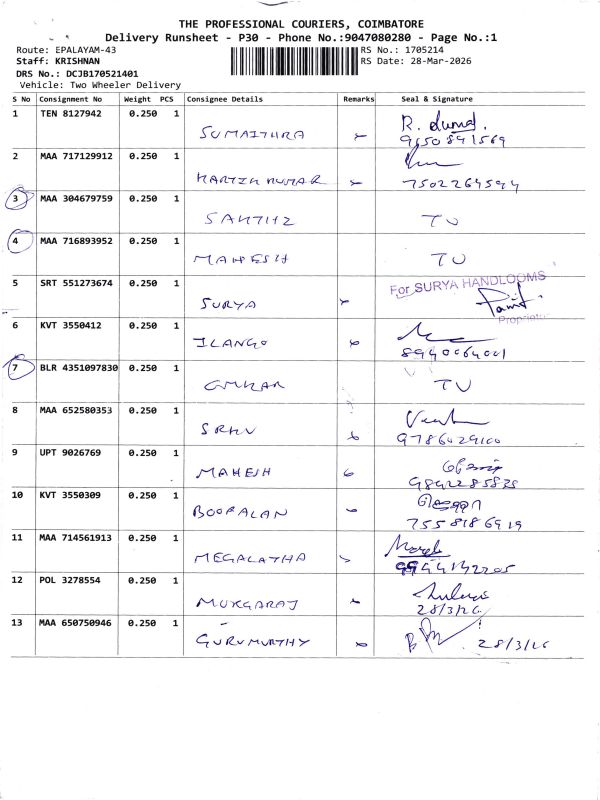 THE PROFESSIONAL COURIERS, COIMBATORE
Delivery Runsheet - P30 - Phone No.:9047080280 - Page No.:1
Route: EPALAYAM-43 RS No.: 1705214
Staff: KRISHNAN RS Date: 28-Mar-2026
DRS No.: DCJB170521401
Vehicle: Two Wheeler Delivery
S No Consignment No Weight PCS Consignee Details Remarks Seal & Signature
1 TEN 8127942 0.250 1 SUMAITHRA
2 MAA 717129912 0.250 1 KARTIK KUMAR 7502264594
3 MAA 304679759 0.250 1 TU
4 MAA 716893952 0.250 1 MAHESH TU
5 SRT 551273674 0.250 1 SURYA For SURYA HANDLOOMS
Proprietor
6 KVT 3550412 0.250 1 ILANGO 8940064001
7 BLR 4351097830 0.250 1 OMKAR TU
8 MAA 652580353 0.250 1 9786029100
9 UPT 9026769 0.250 1 MAHESH
10 KVT 3550309 0.250 1 BOOPALAN 7558186919
11 MAA 714561913 0.250 1 MEGALATHA
12 POL 3278554 0.250 1 28/3/26
13 MAA 650750946 0.250 1 GURUMURTHY 28/3/26